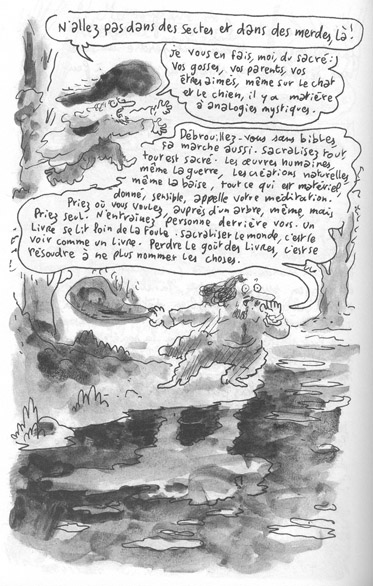 N'allez pas dans des sectes et dans des merdes, là !
Je vous en fais, moi, du sacré :
vos gosses, vos parents, vos
êtres aimés, même sur le chat
et le chien, il y a matière
à analogies mystiques.
Débrouillez-vous sans bibles,
ça marche aussi. Sacralisez tout,
tout est sacré. Les œuvres humaines,
même la guerre, les créations naturelles,
même la baise, tout ce qui est matériel,
donné, sensible, appelle votre méditation.
Priez où vous voulez, auprès d'un arbre, même, mais
Priez seul. N'entraînez personne derrière vous. Un
Livre se lit loin de la foule. Sacraliser le monde, c'est le
voir comme un livre. Perdre le goût des livres, c'est se
résoudre à ne plus nommer les choses.